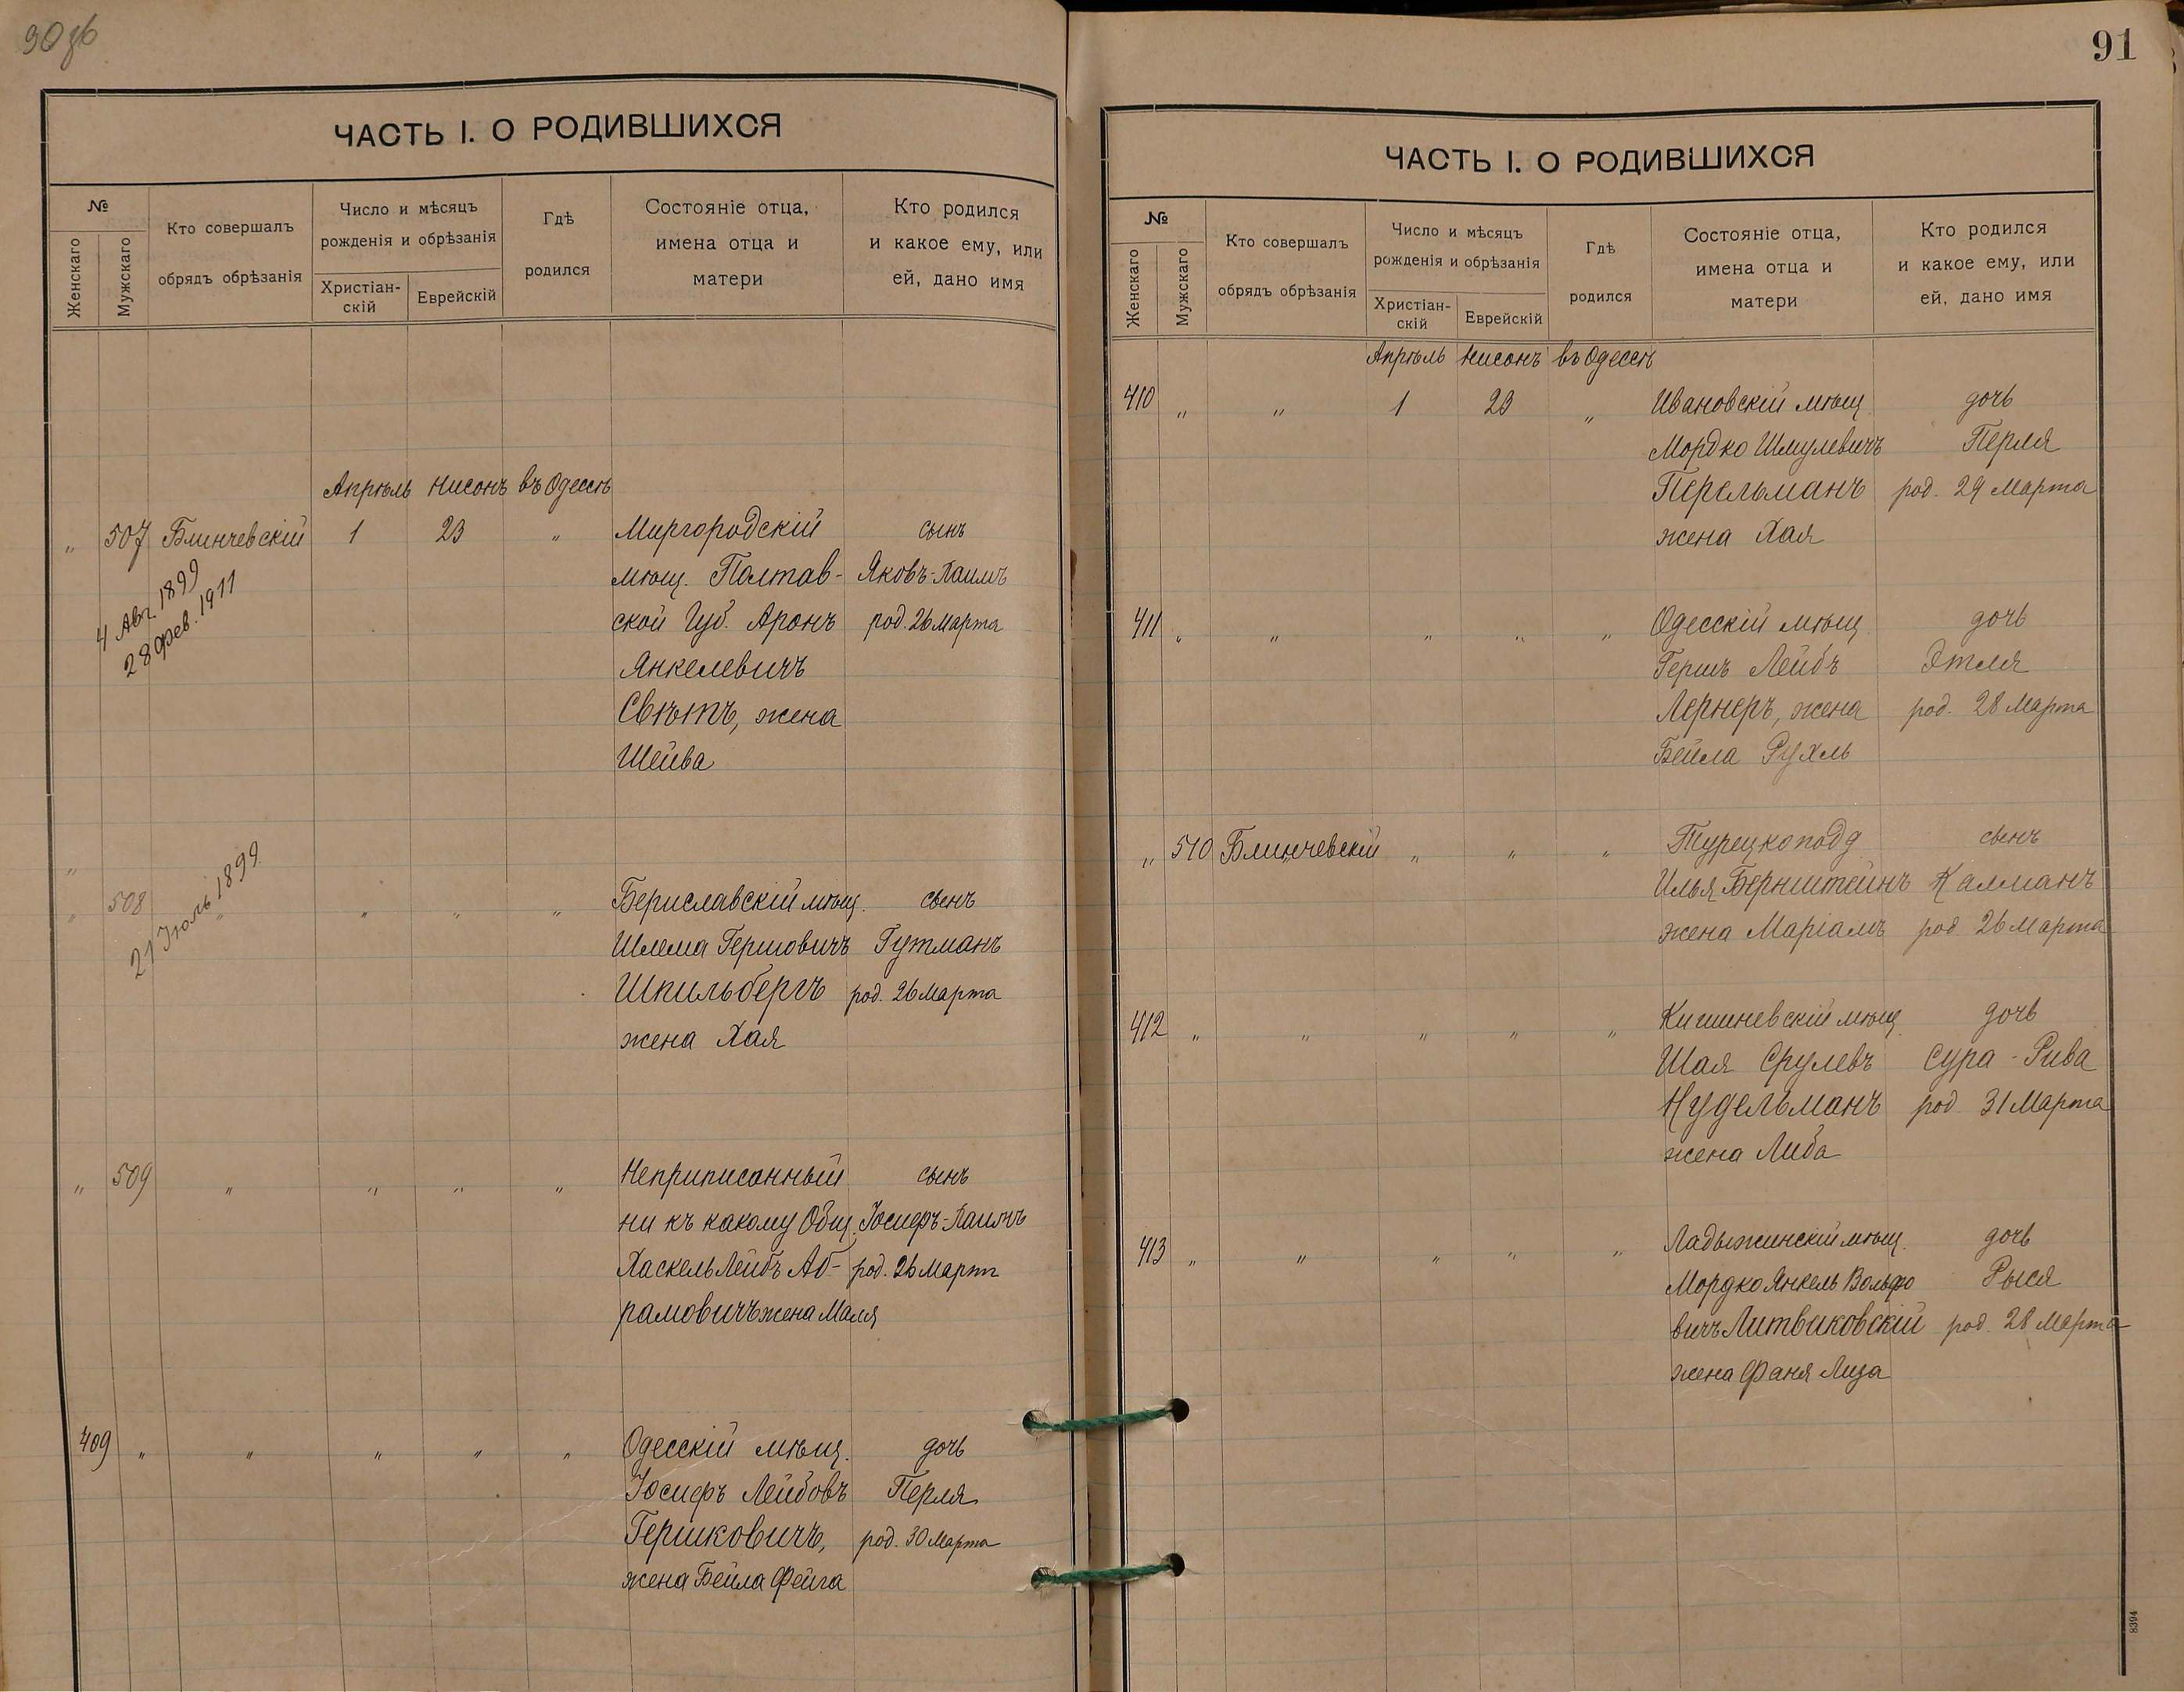 90 об
ЧАСТЬ I. О РОДИВШИХСЯ
№
Женскаго
Мужскаго
Кто совершалъ
обрядъ обрѣзанія
Число и мѣсяцъ
рожденія и обрѣзанія
Христіан-
скій
Еврейскій
Гдѣ
родился
Состояніе отца,
имена отца и
матери
Кто родился
и какое ему, или
ей, дано имя
Апрѣль Нисонъ въ Одессѣ
„ 507 Блинчевскій 1 23 „ Миргородскій сынъ
мѣщ. Полтав- Яковъ-Хаимъ
ской Губ. Аронъ род. 26 Марта
Янкелевичъ
Свѣтъ, жена
Шейва
4 Авг 1899
28 фев. 1911
„
„ 508 „ „ „ „ Бериславскій мѣщ. сынъ
Шлема Гершовичъ Гутманъ
Шпильбергъ род. 26 Марта
жена Хая
21 Іюль 1899
„ 509 „ „ „ „ Неприписанный сынъ
ни къ какому Общ. Іосифъ-Хаимъ
Хаскель Лейбъ Аб- род. 26 Март
рамовичъ жена Маля
409 „ „ „ „ „ Одесскій мѣщ. дочь
Іосифъ Лейбовъ Перля
Гершковичъ, род. 30 Марта
жена Бейла Фейга
91
ЧАСТЬ I. О РОДИВШИХСЯ
№
Женскаго
Мужскаго
Кто совершалъ
обрядъ обрѣзанія
Число и мѣсяцъ
рожденія и обрѣзанія
Христіан-
скій
Еврейскій
Гдѣ
родился
Состояніе отца,
имена отца и
матери
Кто родился
и какое ему, или
ей, дано имя
Апрѣль Нисонъ въ Одессѣ
410 „ „ 1 23 „ Ивановскій мѣщ. дочь
Мордко Шмулевичъ Перля
Перельманъ род. 29 Марта
жена Хая
411 „ „ „ „ „ Одесскій мѣщ. дочь
Гершъ Лейбъ Этля
Лернеръ, жена род. 28 Марта
Бейла Рухль
„ 510 Блинчевскій „ „ „ Турецкоподд сынъ
Илья Бернштейнъ Калманъ
жена Маріамъ род 26 Марта
412 „ „ „ „ „ Кишиневскій мѣщ. дочь
Шая Срулевъ Сура-Рива
Нудельманъ род 31 Марта
жена Либа
413 „ „ „ „ „ Ладыжинскій мѣщ. дочь
Мордко Янкель Вольфо Рыся
вичъ Литваковскій род. 28 Марта
жена Фаня Лиза
8394